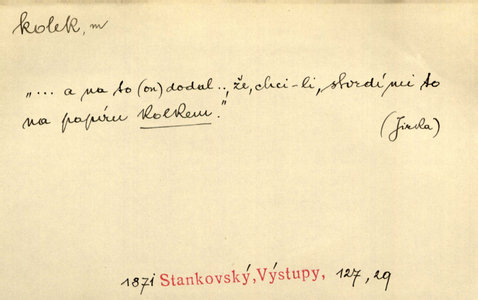 kolek, m
„... a na to (on) dodal.., že, chci-li, stvrdí mi to
na papíru kolkem."
(Jirka)
1871 Stankovský, Výstupy, 127, 29